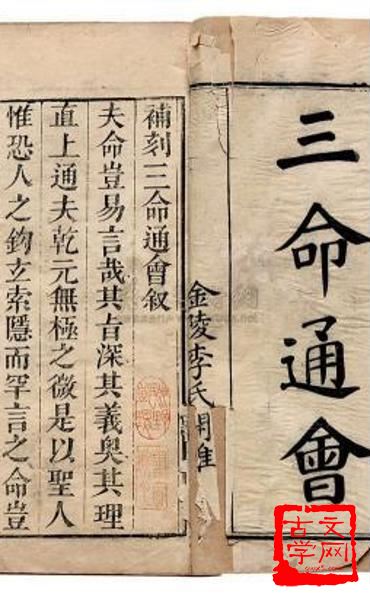 三命通會
金陵李氏
補刻三命通會叙
夫命豈易言哉其旨深其義奧其理
直上通夫乾元無極之微是以聖人
惟恐人之鈎玄索隱而罕言之命豈
古文
学网